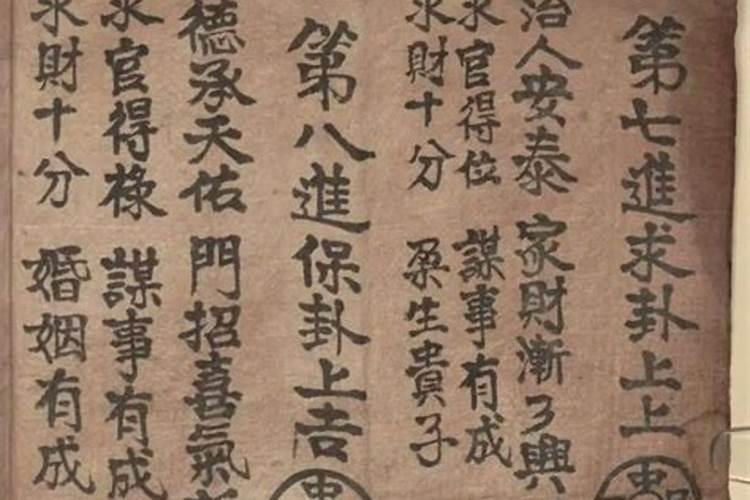 第七進求卦上上
治人安泰 家財漸了興
求官得位 謀事有成
求財十分 孕生貴子
第八進保卦上吉
德承天佑 門招喜氣
求官得祿 謀事有成
求財十分 婚姻有成